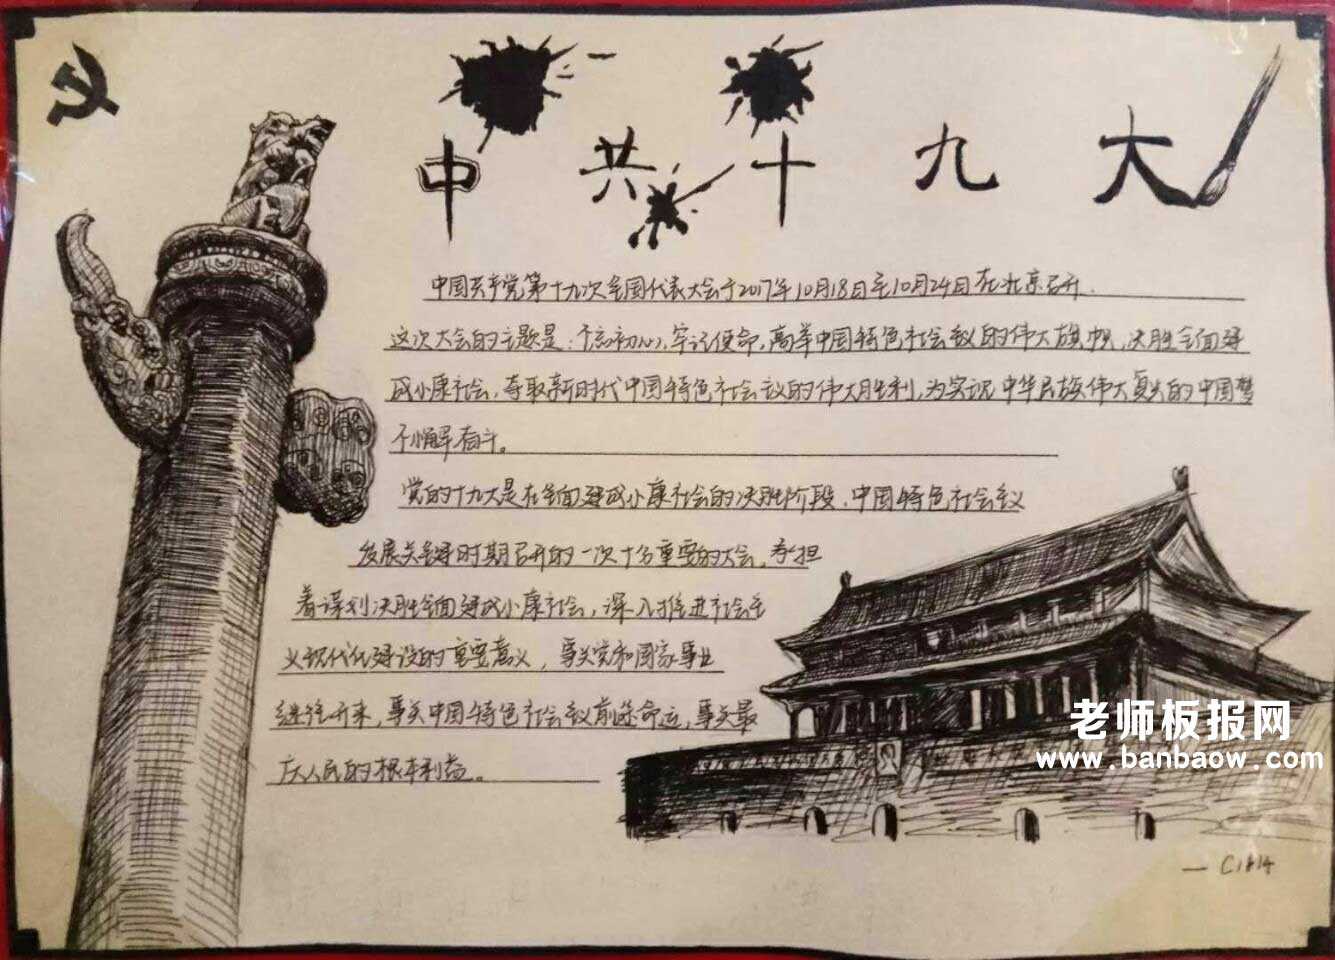 中共十九大
中国共产党第十九次全国代表大会于2017年10月18日至10月24日在北京召开.
这次大会的主题是:不忘初心,牢记使命,高举中国特色社会主义的伟大旗帜,决胜全面建
成小康社会,夺取新时代中国特色社会主义的伟大胜利,为实现中华民族伟大复兴的中国梦
不懈奋斗。
党的十九大是在全面建成小康社会的决胜阶段、中国特色社会主义
发展关键时期召开的一次十分重要的大会。承担
着谋划决胜全面建成小康社会,深入推进社会主
义现代化建设的重要意义,事关党和国家事业
继往开来,事关中国特色社会主义前途命运,事关最
广人民的根本利益。
老师板报网
www.banbaow.com